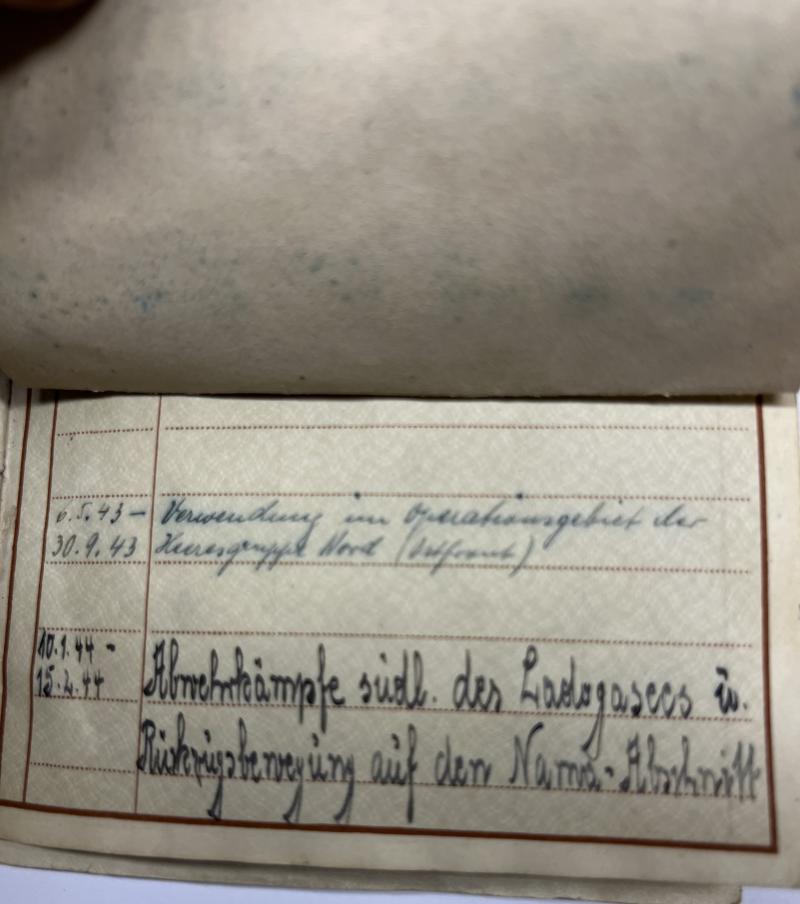 6.5.43 – Verwendung im Operationsgebiet der
30.9.43 Heeresgruppe Nord (Ostfront)
10.1.44 - Abwehrkämpfe südl. des Ladogasees u.
15.2.44
Rückzugsbewegung auf den Narwa-Abschnitt